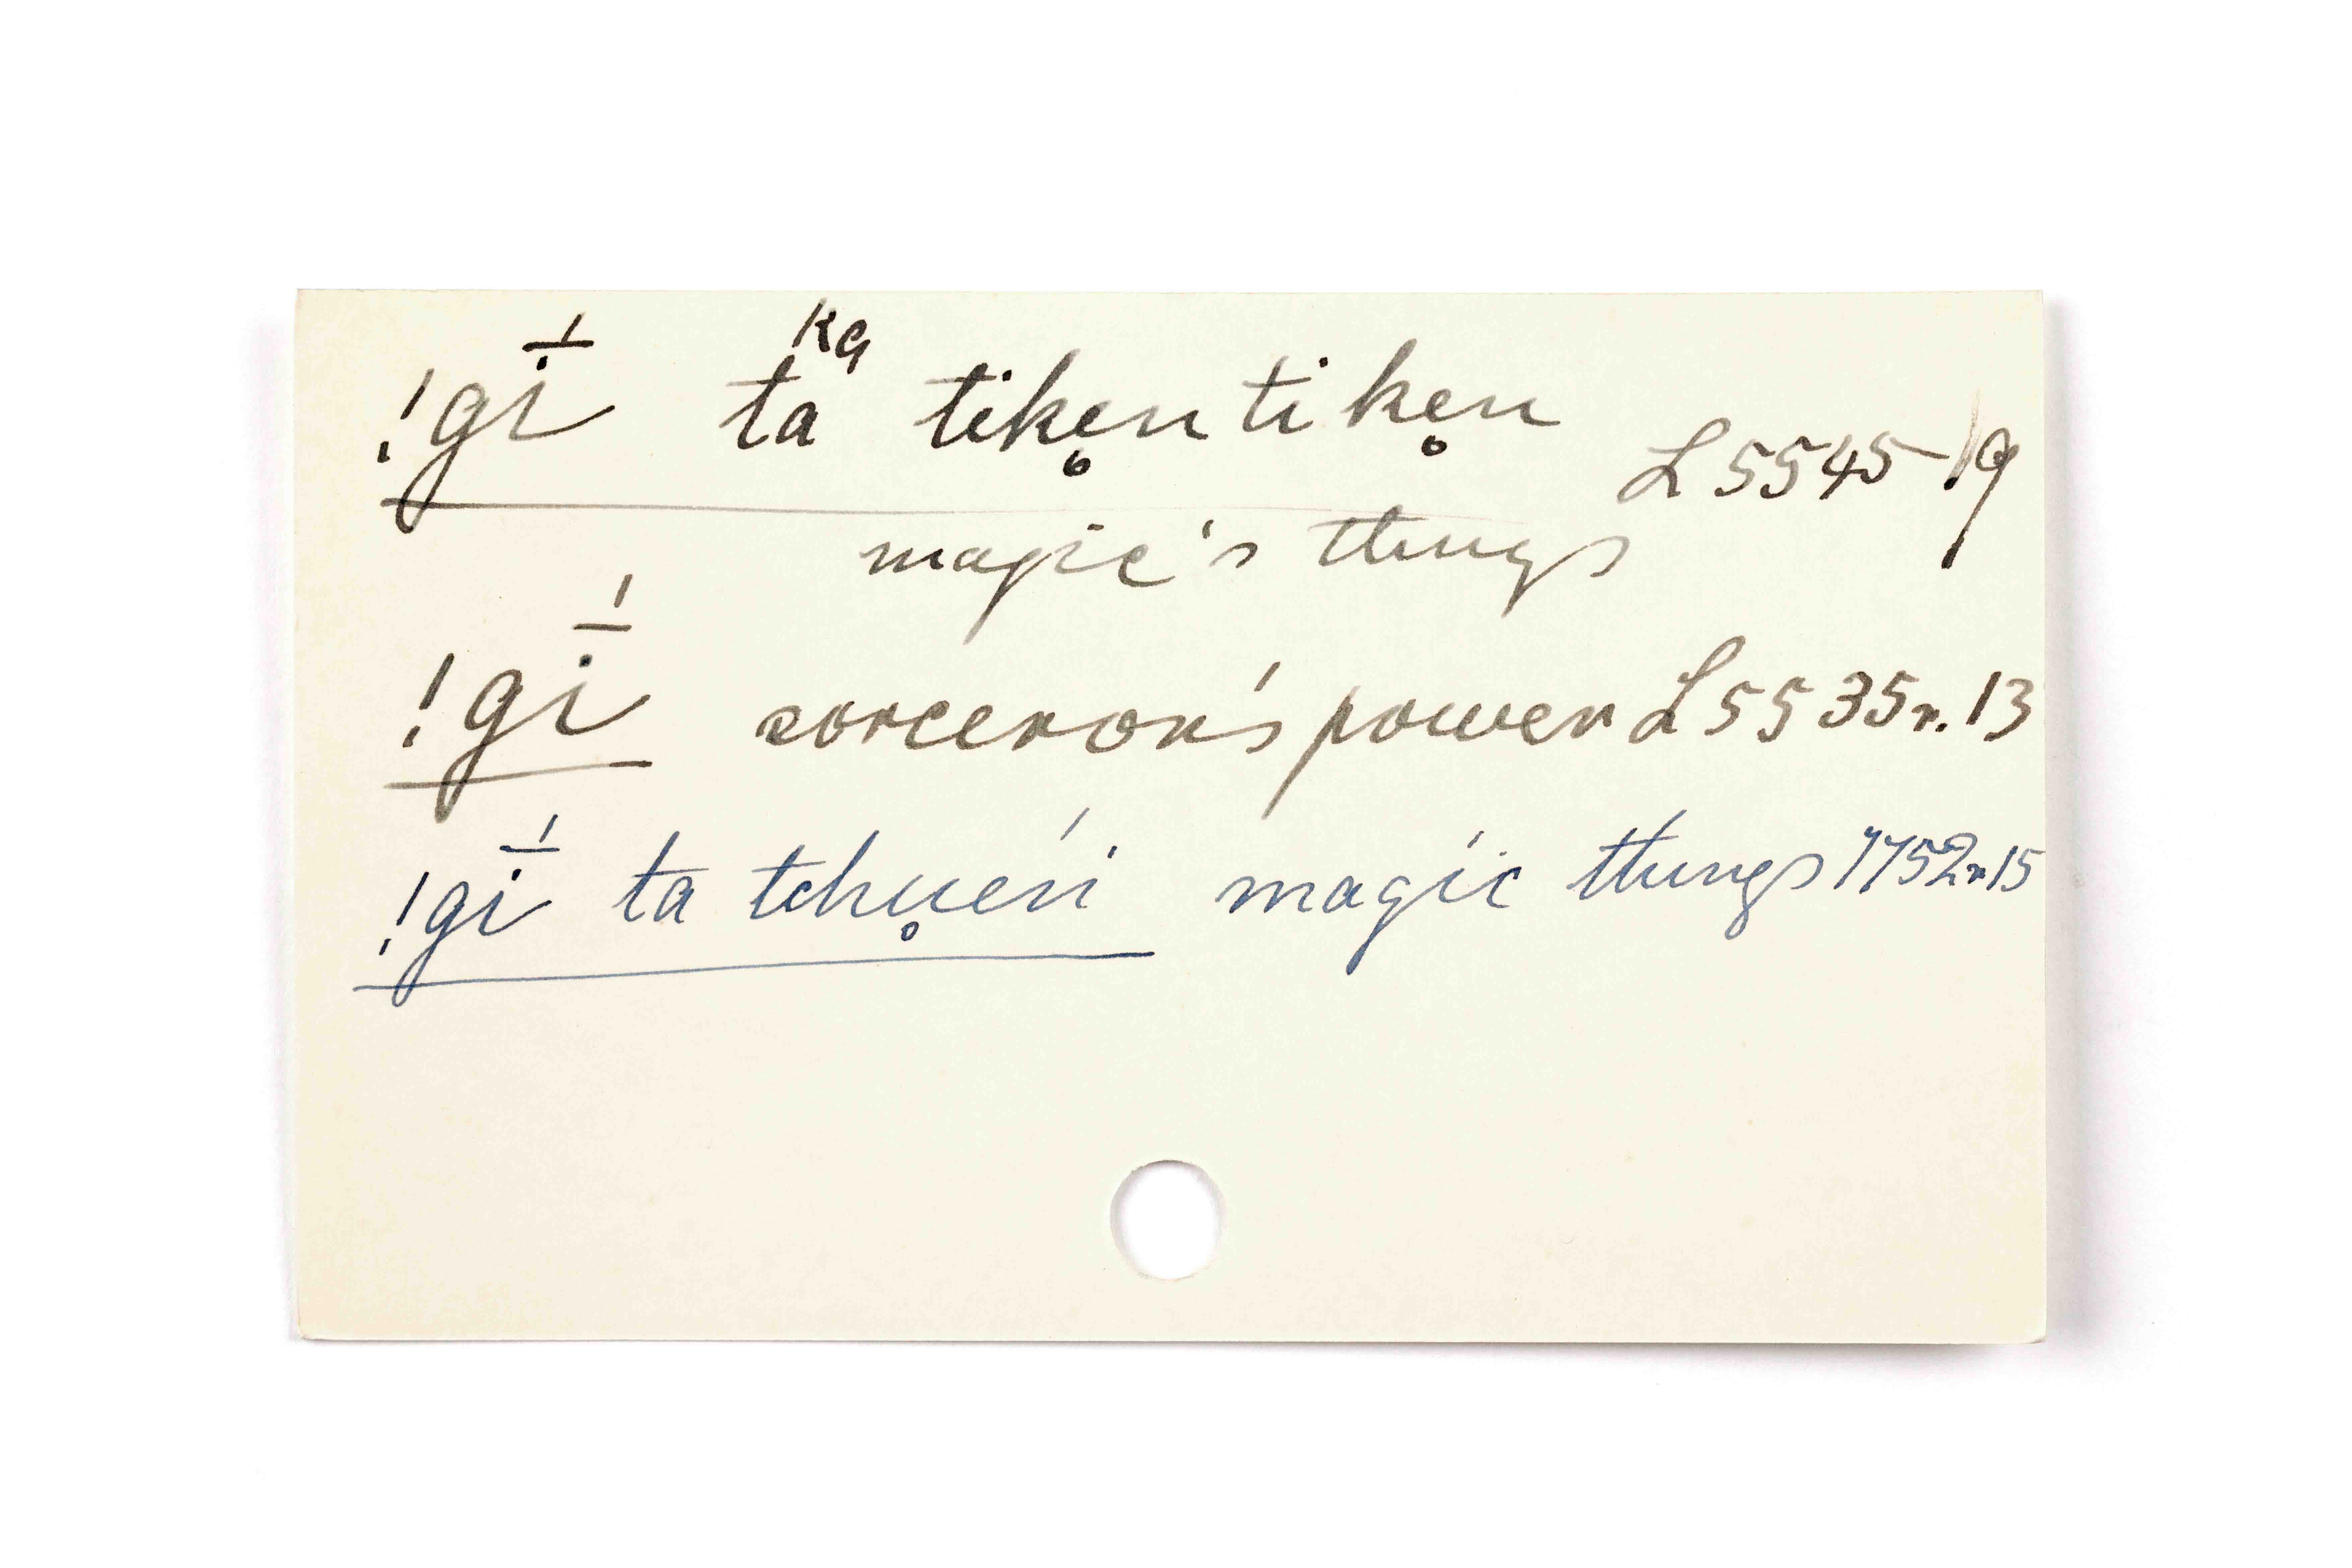 !gī́ ta kạ tikẹn tikẹn L 5545-19
magic's things
!gī́ sorceror's power L 5535r. 13
!gī́ ta tchụeń magic things 1752r15